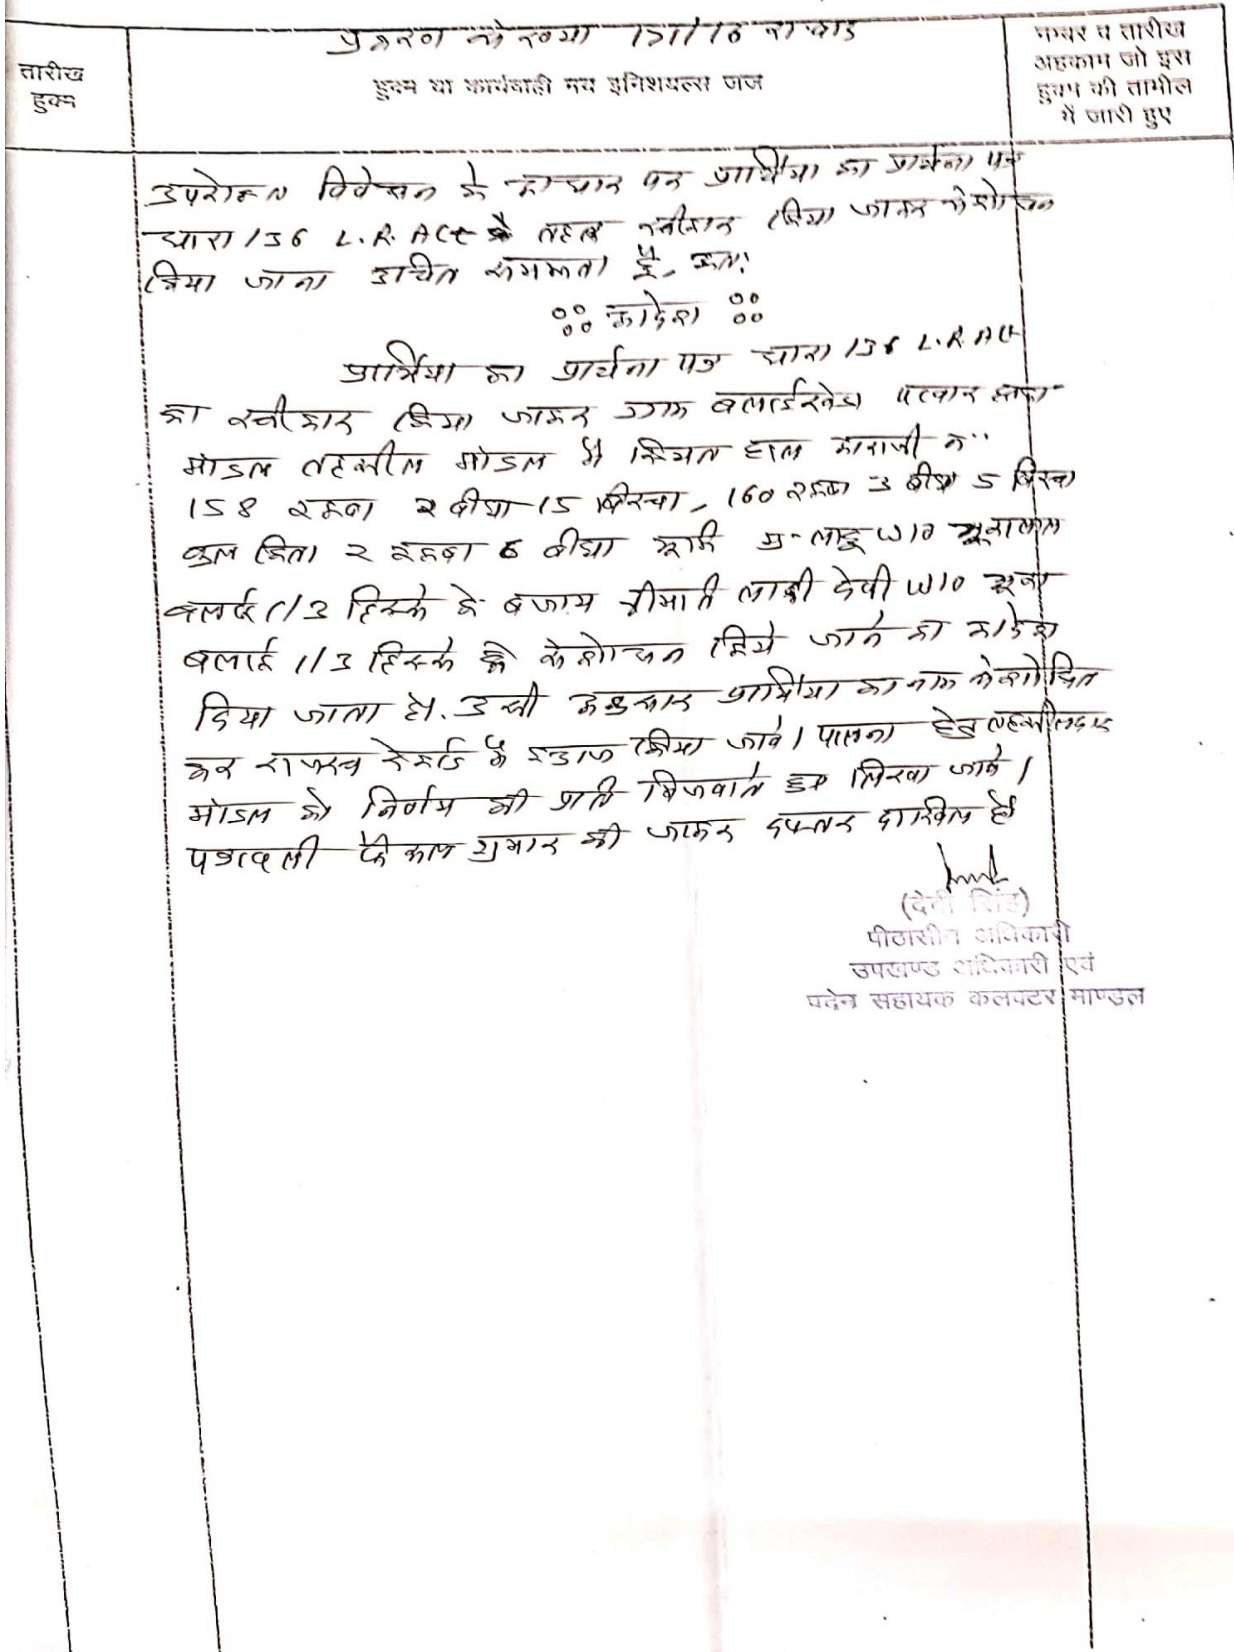 प्रकरण संख्या
तारीख
हुक्म
हुक्म या कार्यवाही मय इनिशियल्स जज
नम्बर व तारीख
अहकाम जो इस
हुक्म की तामील
में जारी हुए
उपरोक्त विवेचन के आधार पर प्रार्थिया का प्रार्थना पत्र
धारा 136 L.R. Act के तहत स्वीकार किया जाकर संशोधन
किया जाना उचित समझता हूँ, अतः
आदेश
प्रार्थिया का प्रार्थना पत्र धारा 136 L.R. Act
का स्वीकार किया जाकर ग्राम बलाईखेडा पटवार हल्का
मांडल तहसील मांडल में स्थित हाल आराजी नं.
158 रकबा 2 बीघा 15 बिस्वा, 160 रकबा 3 बीघा 5 बिस्वा
कुल किता 2 रकबा 6 बीघा लादु W/O
बलाई 1/3 हिस्से के बजाय श्रीमति लाडी देवी W/O
बलाई 1/3 हिस्से संशोधन किये जाने का आदेश
दिया जाता है. उसी अनुसार प्रार्थिया का नाम संशोधित
कर राजस्व रेकर्ड में इन्द्राज किया जावे। पालना हेतु तहसीलदार
मांडल को निर्णय की प्रति भिजवाते हुए लिखा जावे।
पत्रावली फैसल शुमार की जाकर दफ्तर दाखिल हो
(देवी सिंह)
पीठासीन अधिकारी
उपखण्ड अधिकारी एवं
पदेन सहायक कलक्टर माण्डल